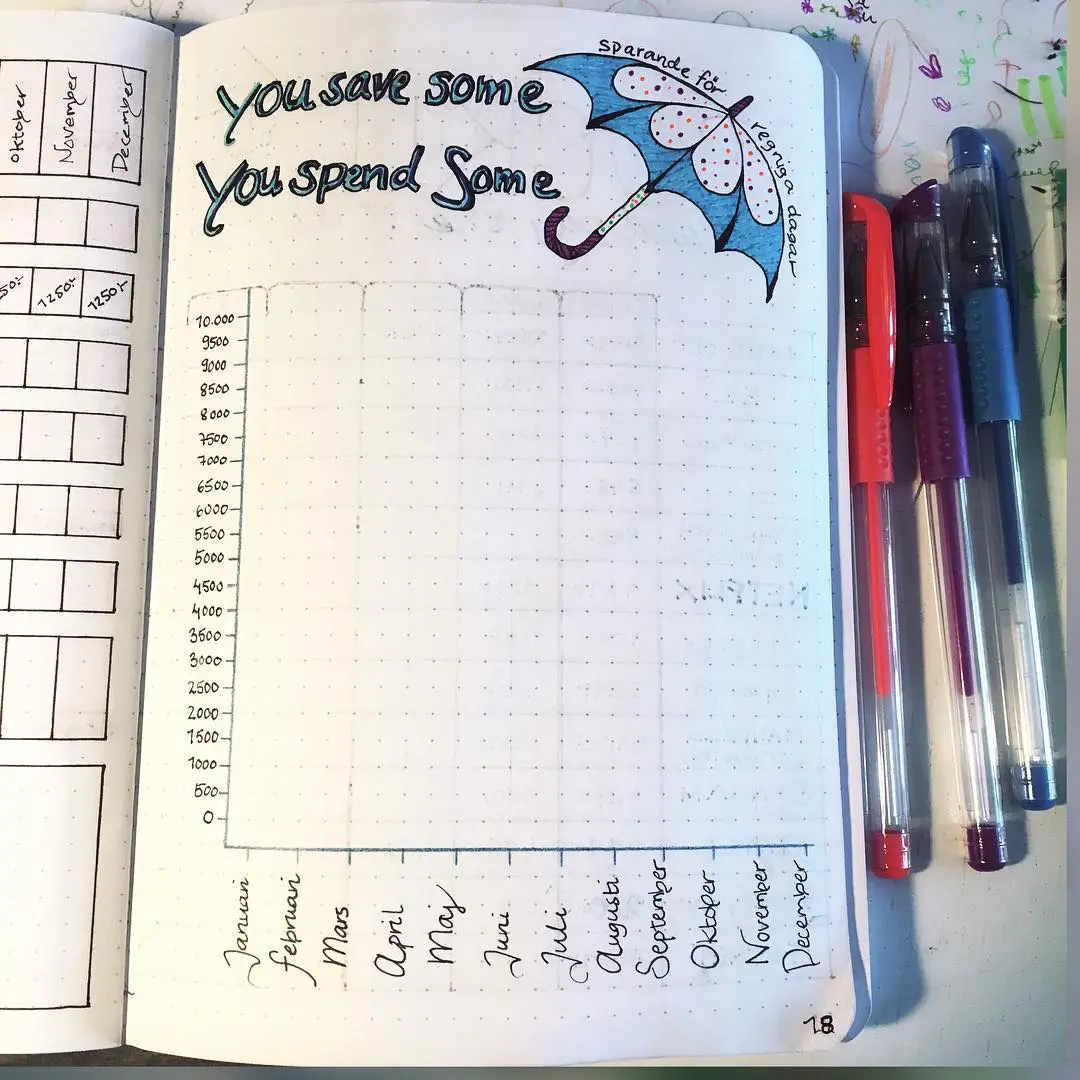 oktober
November
December
50:-
1250:-
1250:-
You save some
You spend Some
sparande för
regniga dagar
10.000
9500
9000
8500
8000
7500
7000
6500
6000
5500
5000
4500
4000
3500
3000
2500
2000
1500
1000
500
0
NETFLIX
Januari
februari
Mars
April
Maj
Juni
Juli
Augusti
September
Oktober
November
December
18